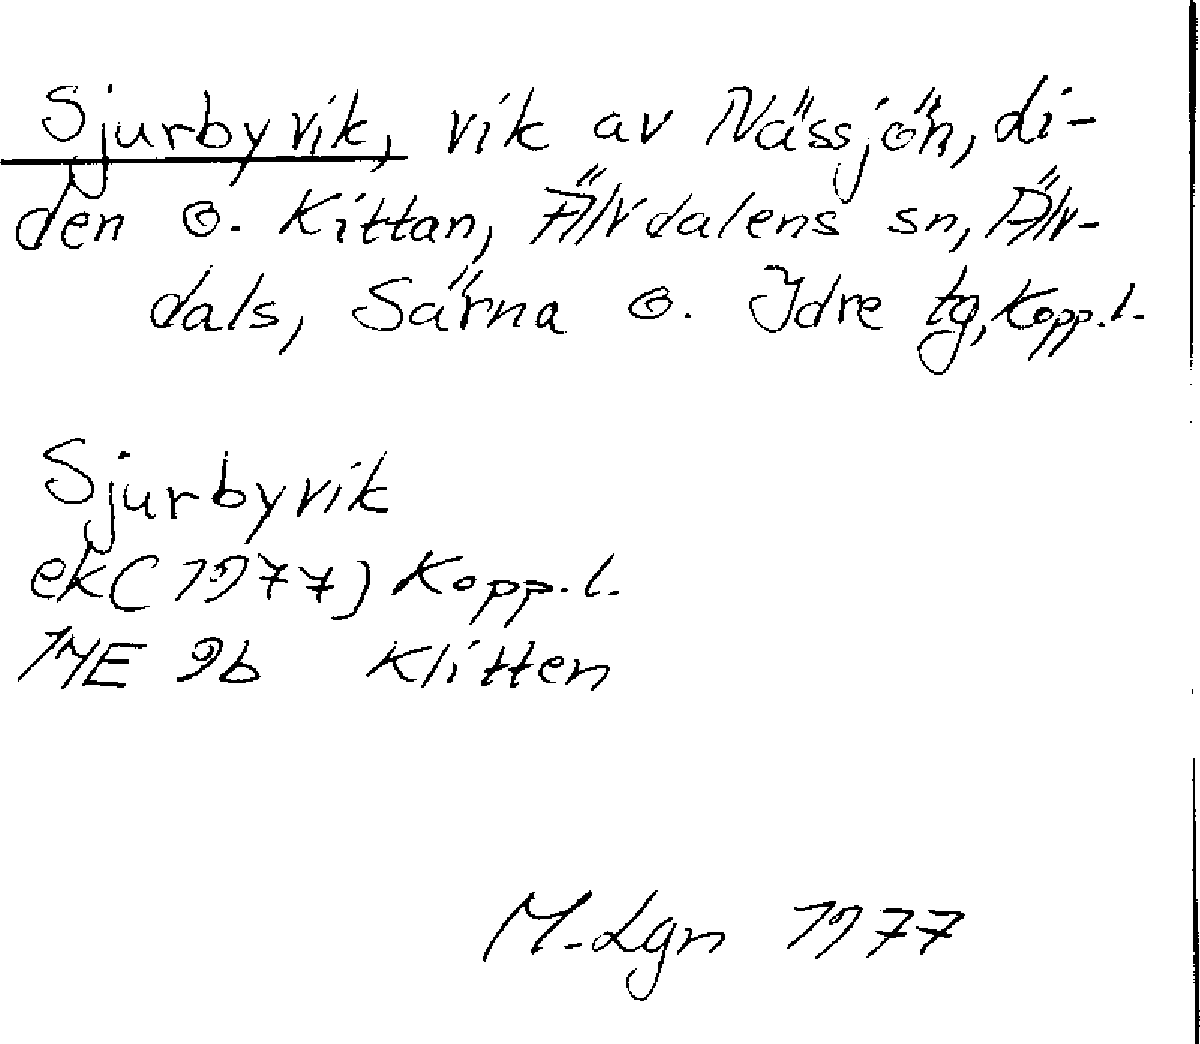 Sjurbyvik, vik av Nässjön, di-
den o. Kittan, Älvdalens sn, Älv-
dals, Särna o. Idre tg, Kopp.l.
Sjurbyvik
ek (1977) Kopp.l.
14E 9b Klitten
M.Lgn 1977